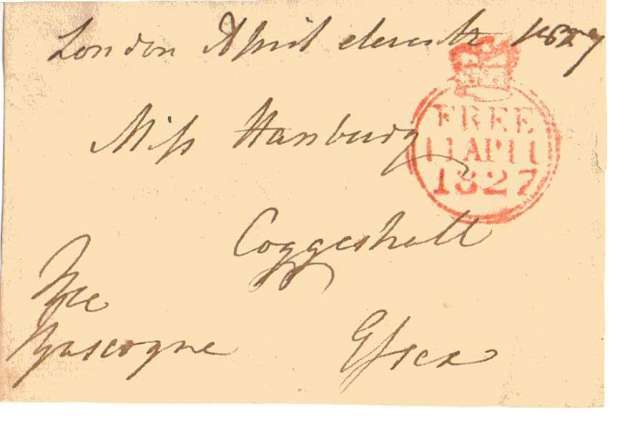 London April eleventh 1827
Miss Hanbury
Coggeshall
Essex
Free
Gascoyne
FREE
11 AP 11
1827